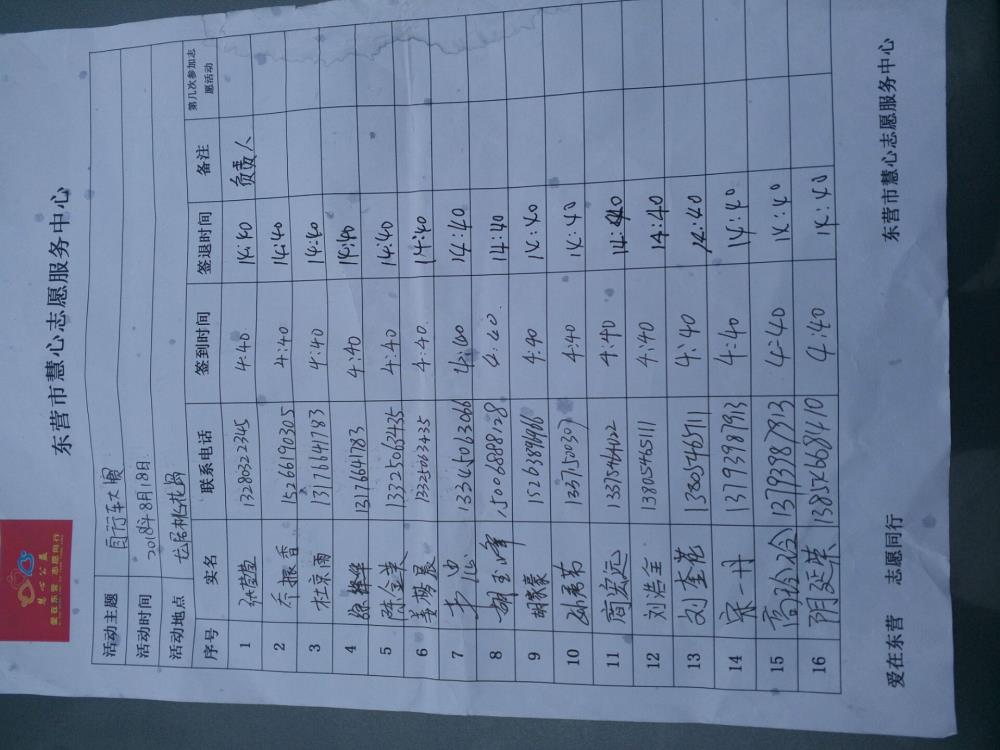 慧心公益
爱在东营 志愿同行
东营市慧心志愿服务中心
活动主题 自行车大赛
活动时间 2018年8月18日
活动地点 龙居桃花岛
序号 实名 联系电话 签到时间 签退时间 备注 第几次参加志愿活动
1 张莹莹 13280322345 4:40 14:40 负责人
2 乔振香 15266190305 4:40 14:40
3 杜京雨 13176641783 4:40 14:40
4 徐 13176641783 4:40 14:40
5 陈金英 13325063435 4:40 14:40
6 姜杨晨 13325063435 4:40 14:40
7 13345063066 4:40 14:40
8 胡玉峰 15006888128 4:40 14:40
9 胡豪豪 4:40 14:40
10 4:40 14:40
11 周宏远 13375464122 4:40 14:40
12 刘浩全 13805465111 4:40 14:40
13 刘奎花 13805465711 4:40 14:40
14 宋丹 13793987913 4:40 14:40
15 高玲玲 13793987913 4:40 14:40
16 阴延荣 13817668410 4:40 14:40
爱在东营 志愿同行 东营市慧心志愿服务中心